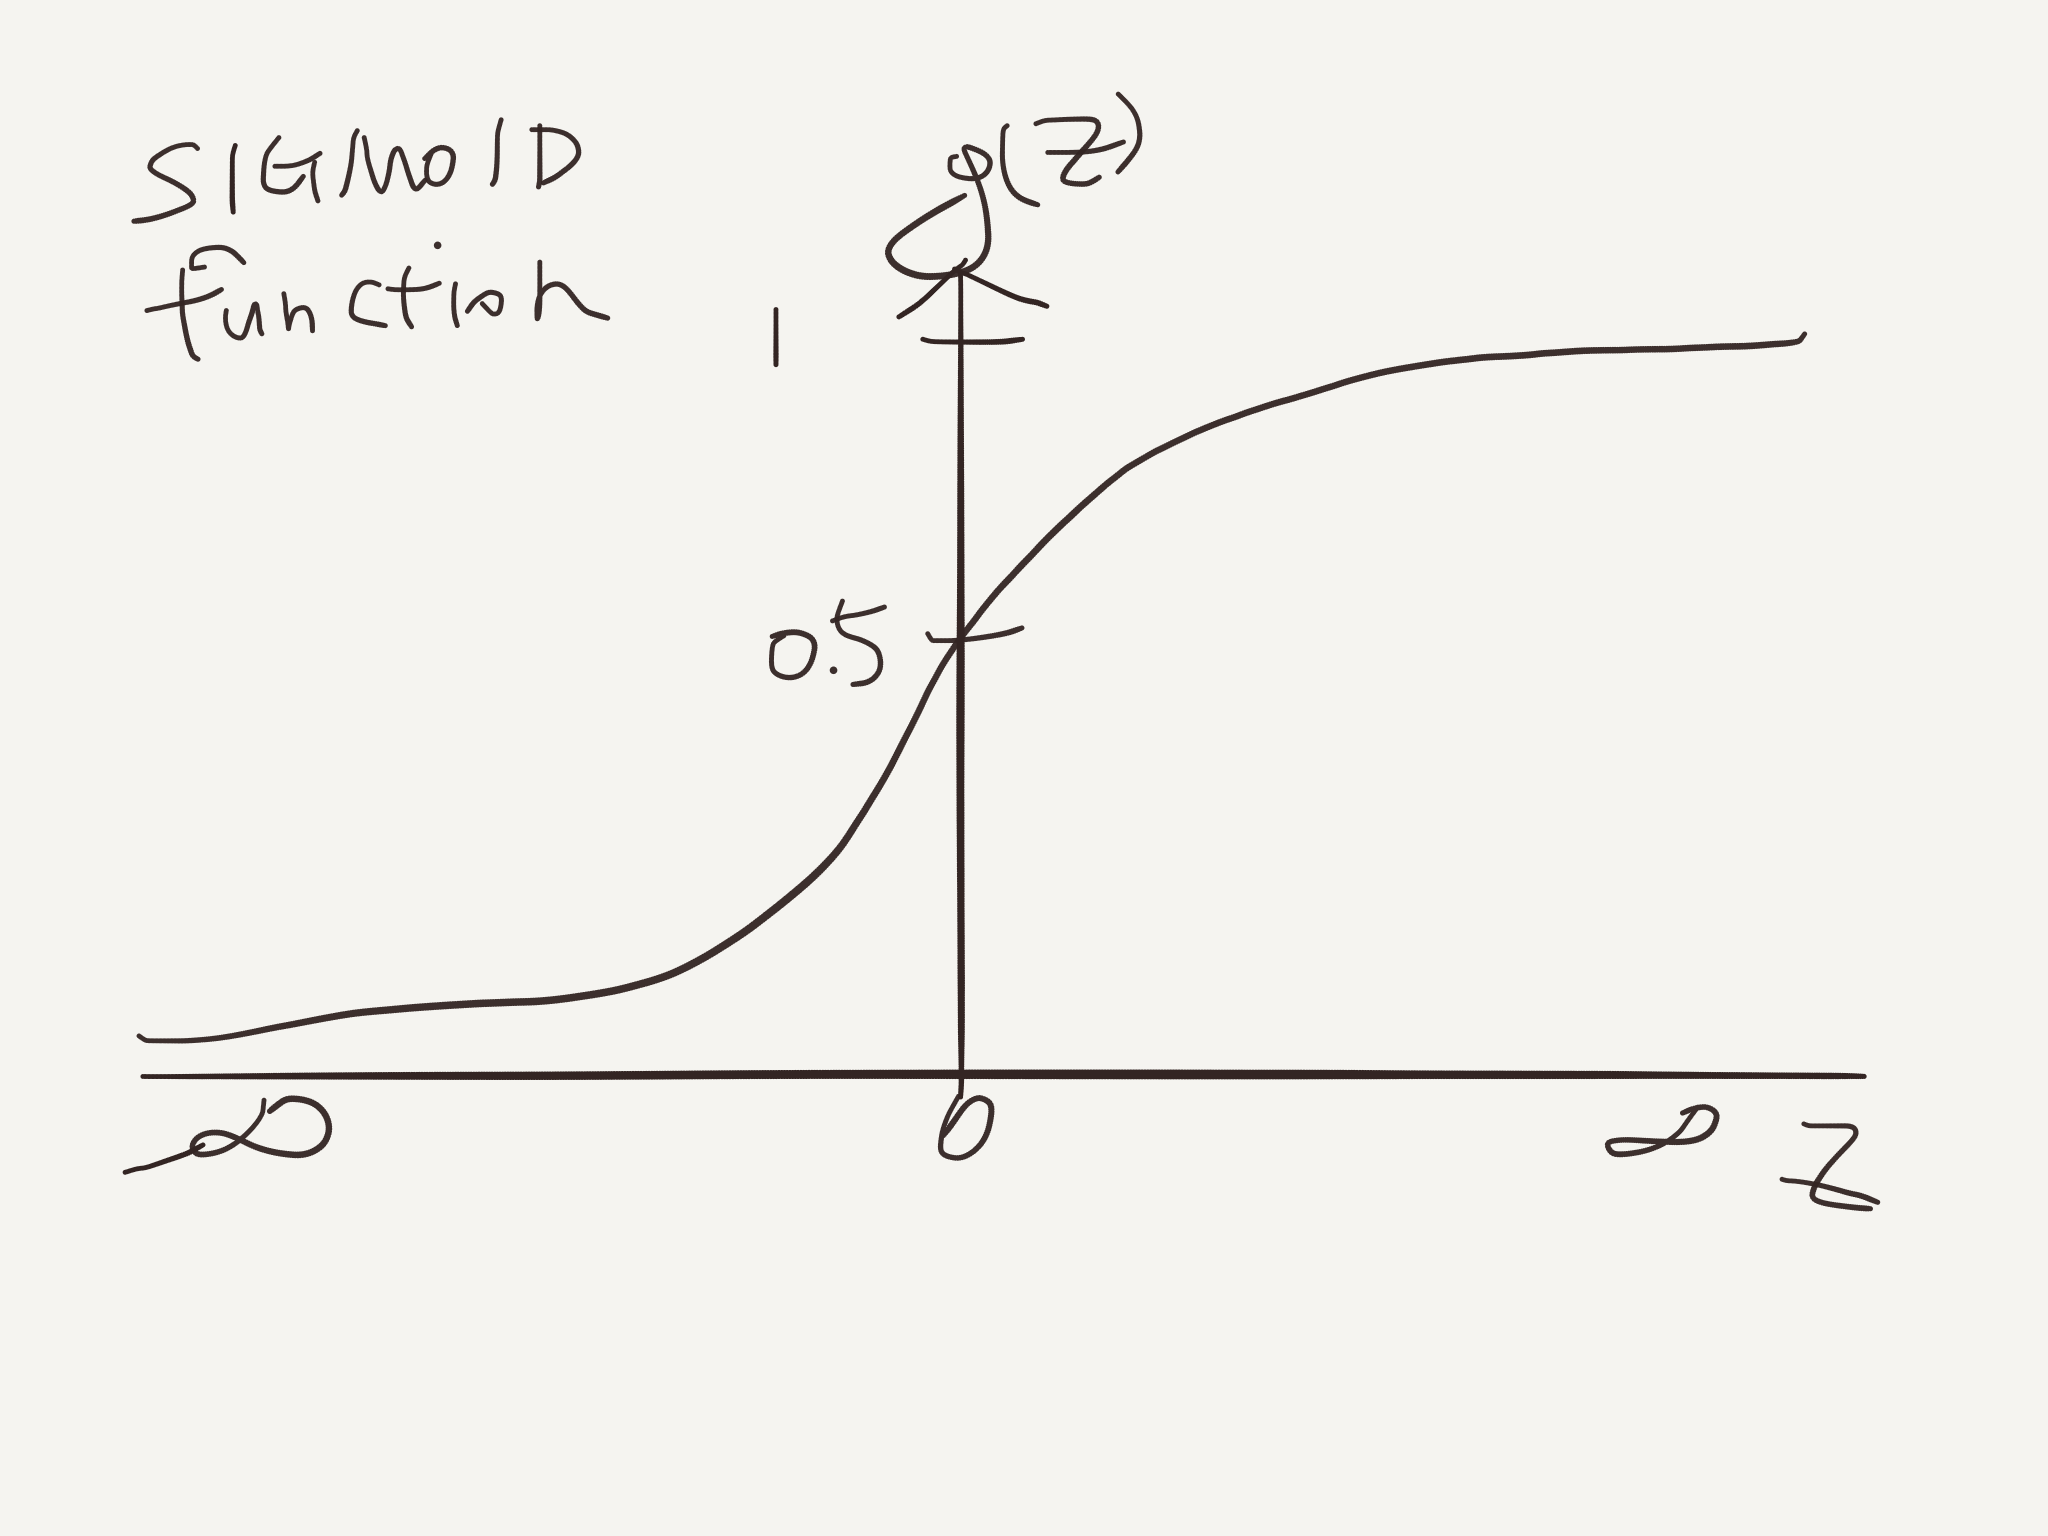 SIGMOID
function
g(z)
1
0.5
-∞ 0 ∞ z